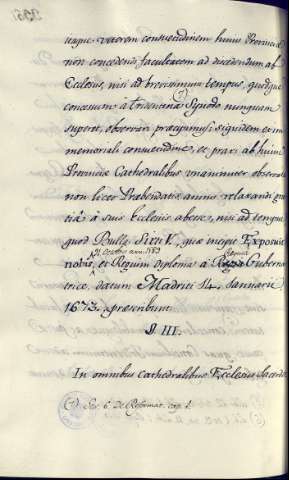 usque veterem consuetudinem huius Provinciæ
non concedendi facultatem ad discedendum ab
Ecclesiis, nisi ad brevissimum tempus, quodque
concessum à Tridentina (*) Synodo nunquam
superet, observari præcipimus: siquidem ex im-
memoriali consuetudine, et praxi ab huius
Provinciæ Cathedralibus unanimiter observata
non licet Præbendatis animo relaxandi gra-
tiâ à suis Ecclesiis abesse, nisi ad tempus,
quod Bulla Sixti V, quæ incipit Exposuit
nobis, et Regium diploma à Guberna-
trice, datum Madriti 14 Januarii
1673. præscribunt.
§. III.
In omnibus Cathedralibus Ecclesiis Sacerdo
(*) Ses. 6. de Reformat. cap. 2.